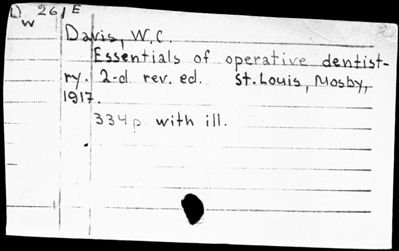 D 261E
W
Davis, W.C.
Essentials of operative dentist-
ry. 2-d rev. ed. St. Louis, Mosby,
1917.
334p. with ill.